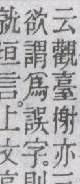 云觀臺榭亦
欲謂爲誤字。則
就垣言。上文高